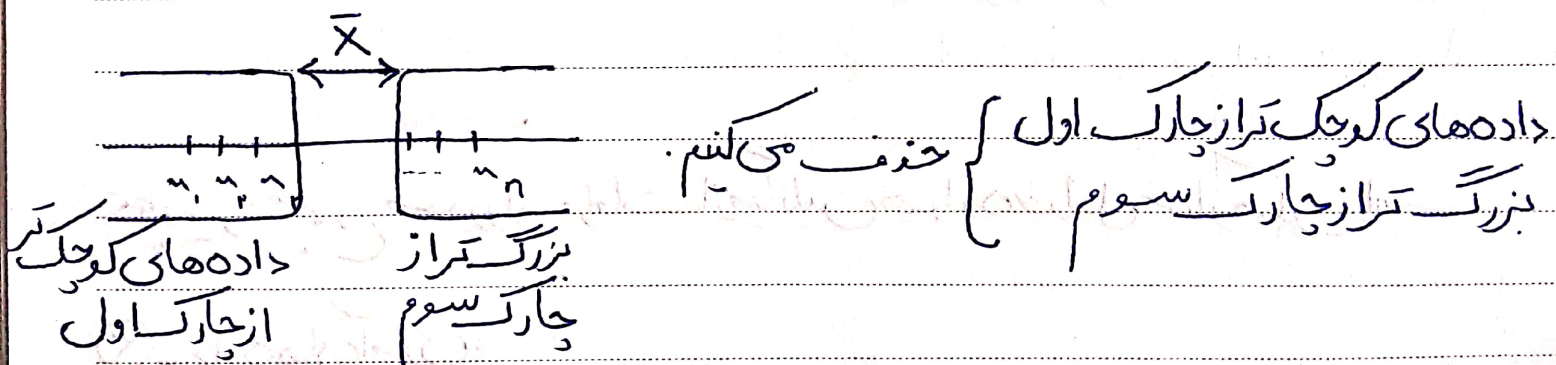 X̄
داده‌های کوچک‌تر از چارک اول
بزرگ‌تر از چارک سوم
حذف می‌کنیم.
x₁ x₂ x₃ ---- xₙ
داده‌های کوچک‌تر
از چارک اول
بزرگ‌تر از
چارک سوم